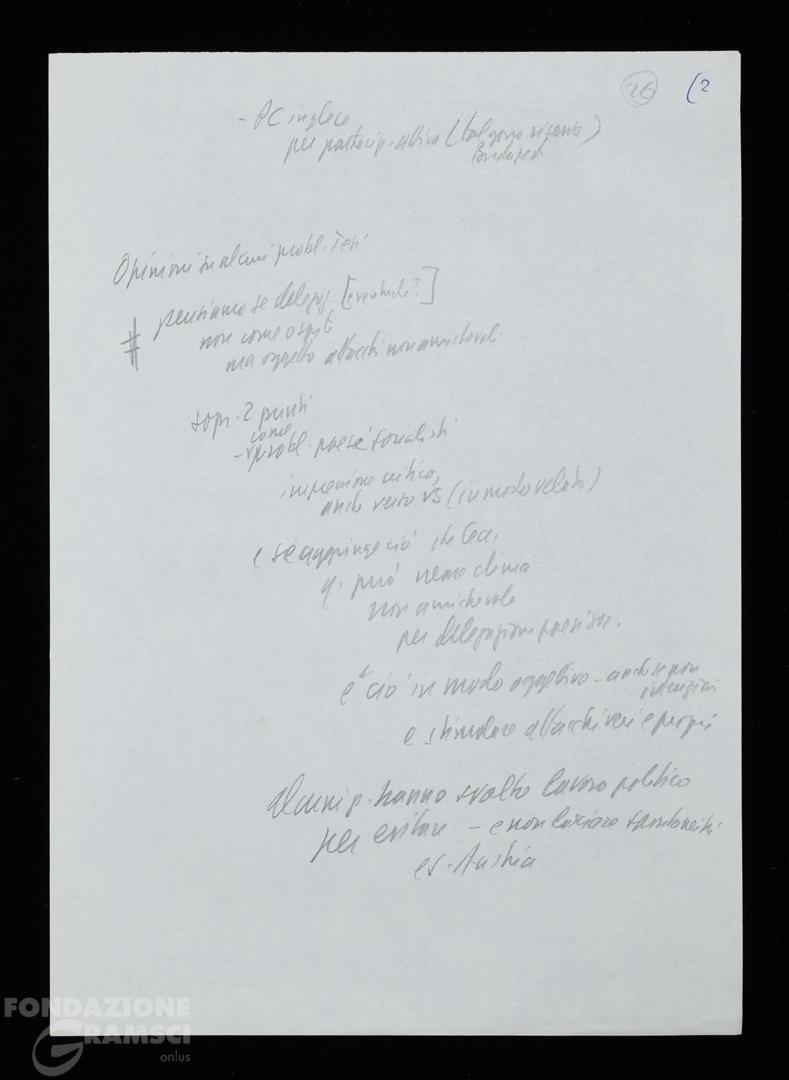 26 (2
- PC inglese
per partecip. attiva (
Budapest
Opinioni su alcuni probl. Tesi
# pensiamo se delegaz. [eventuale?]
non come ospiti
ma oggetto attacchi non amichevoli
sopr. 2 punti
come
- probl. paesi socialisti
impressione critica,
anche verso US (in modo velato)
e si aggiunge ciò che Cec.
q. può clima
non amichevole
per delegazioni paesi soc.
e ciò in modo oggettivo - anche se non
intenzioni
e stimolare attacchi veri e propri
alcuni p. hanno svolto lavoro politico
per evitare - e non lasciare spontaneità
es. Austria
FONDAZIONE
GRAMSCI
onlus